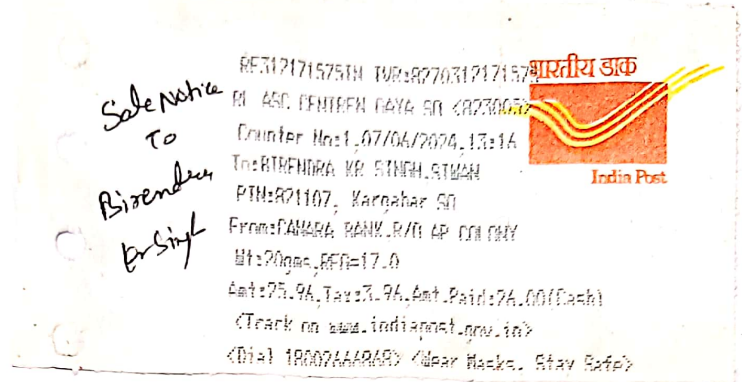 Sale Notice
To
Birendra
Kr Singh
भारतीय डाक
India Post
RF312171575IN IVR:8270312171575
RL ASC CENTREN GAYA SO <823005>
Counter No:1,07/06/2024,13:16
To:BIRENDRA KR SINGH,SIWAN
PIN:821107, Kargahar SO
From:CANARA BANK,R/O AP COLONY
Wt:20gms,REG=17.0
Amt:25.96,Tax:3.96,Amt.Paid:26.00(Cash)
<Track on www.indiapost.gov.in>
<Dial 18002666868> <Wear Masks, Stay Safe>